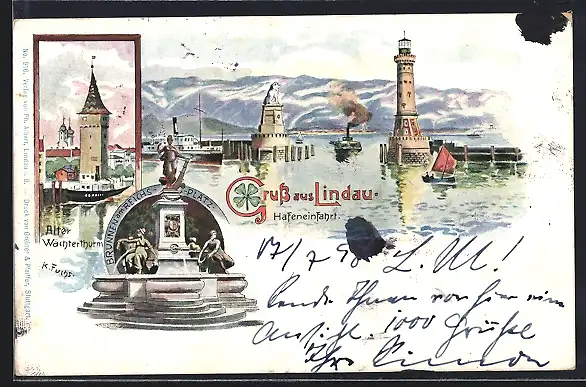 No. 926. Verlag von Ph. Adorf, Lindau i. B. Druck von Geßner & Pfeiffer, Stuttgart.
Alter
Wachterthurm
K. Fuchs.
BRUNNEN am REICHS-PLATZ
Gruß aus Lindau.
Hafeneinfahrt.
17/7 98 L. M!
Sende Ihnen von hier eine
Ansicht. 1000 Grüße
Ihr